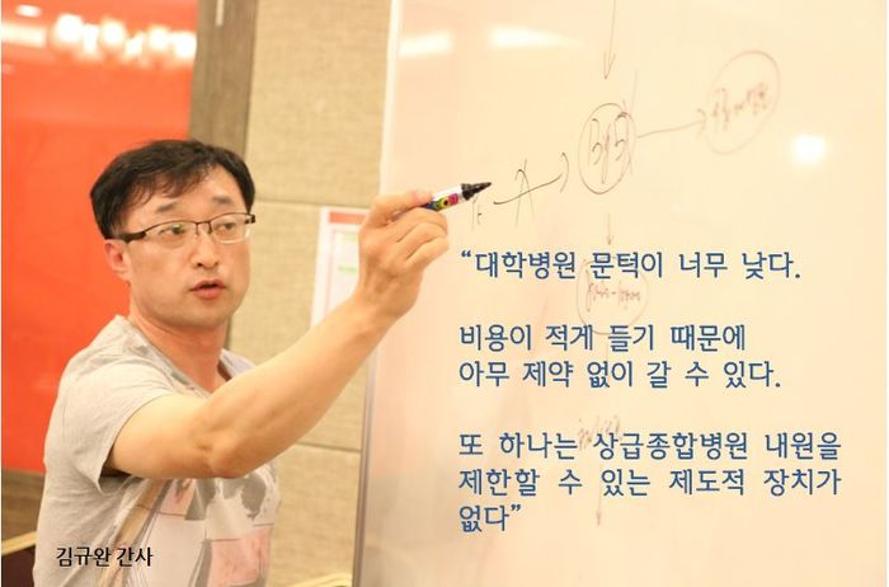 “대학병원 문턱이 너무 낮다.
비용이 적게 들기 때문에
아무 제약 없이 갈 수 있다.
또 하나는 상급종합병원 내원을
제한할 수 있는 제도적 장치가
없다”
김규완 간사